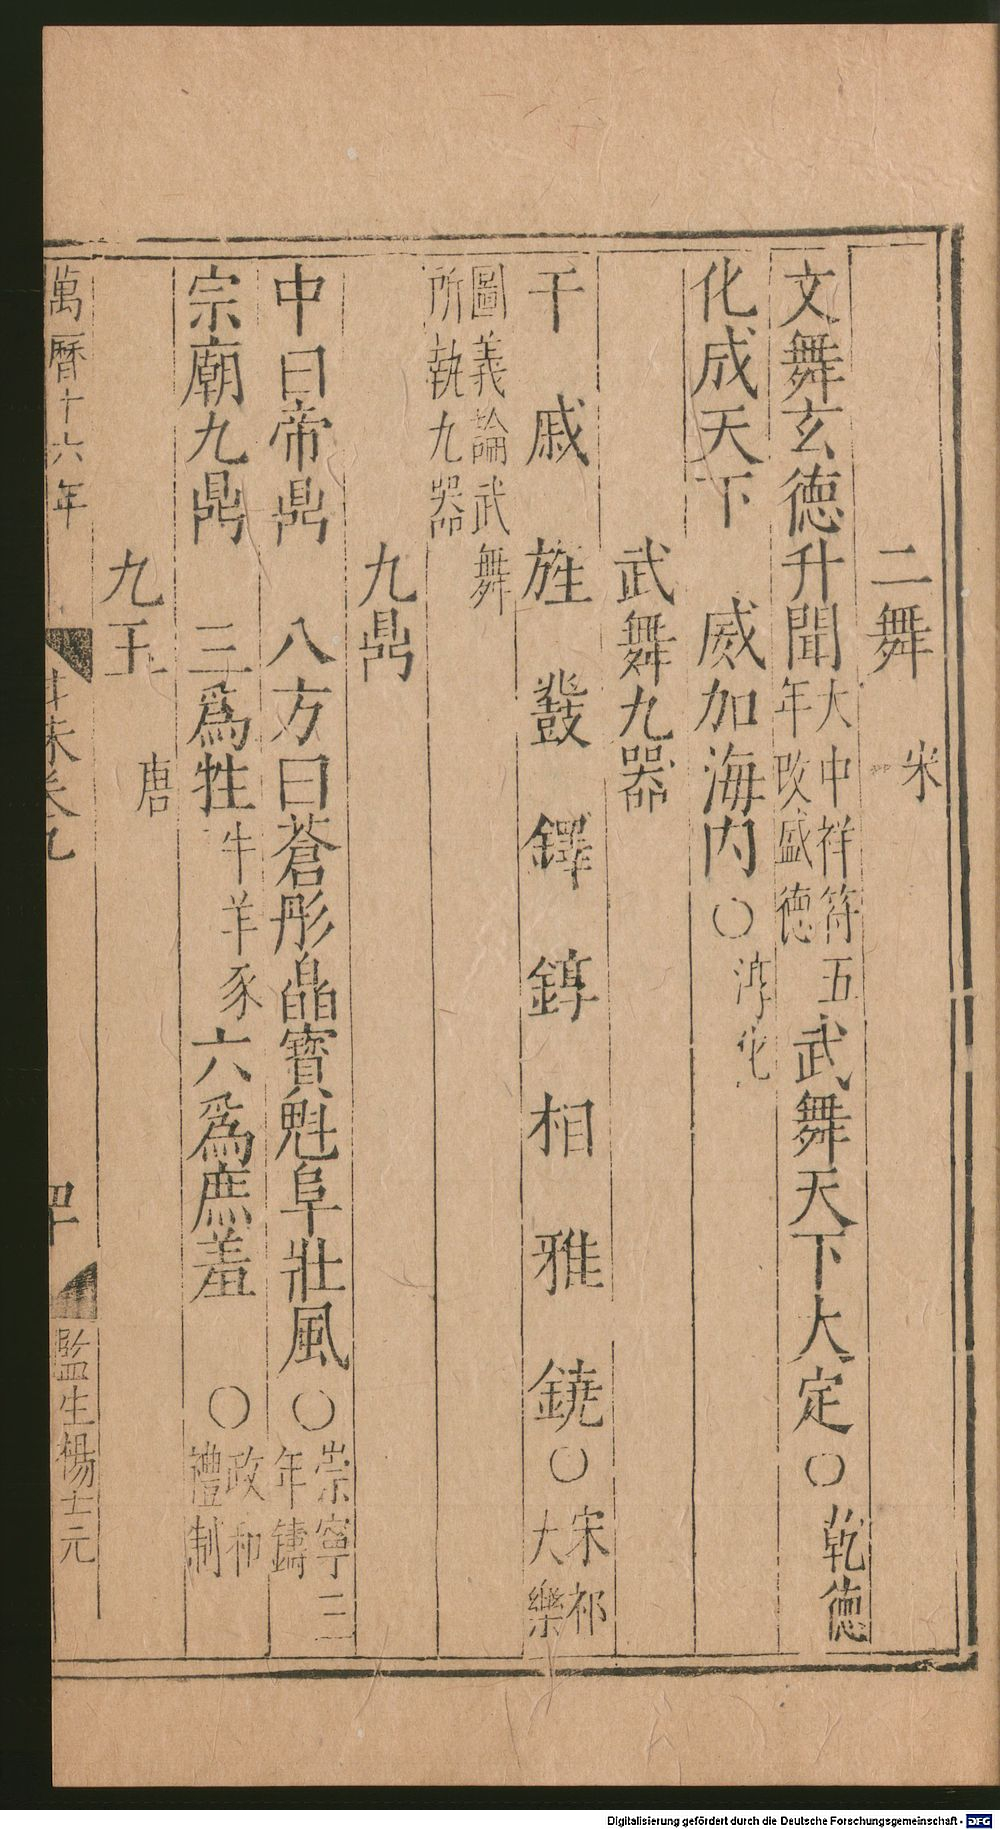 二舞 宋
文舞玄德升聞大中祥符五年改盛德武舞天下大定○乾德
化成天下 威加海內○淳化
武舞九器
干戚旌鼗鐸錞相雅鐃○宋祁大樂
圖義論武舞所執九器
九鼎
中曰帝鼎 八方曰蒼彤皛寶魁阜壯風○崇寧三年鑄
宗廟九鼎 三為牲牛羊豕六為庶羞 ○政和禮制
九玉 唐
萬曆十六年 卷九 四十 監生楊士元
Digitalisierung gefördert durch die Deutsche Forschungsgemeinschaft - DFG